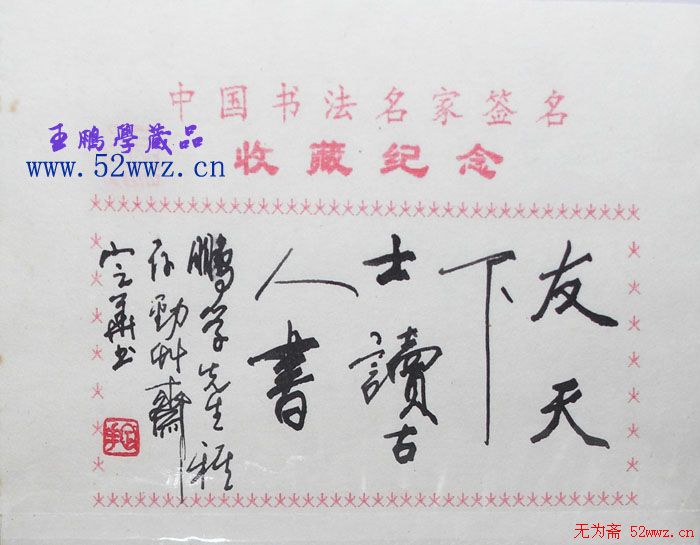 中国书法名家签名
王鹏學藏品
收藏纪念
www.52wwz.cn
友天
下
士讀古
人書
鵬学先生雅
存勁艸齋
定華书
无为斋 52wwz.cn